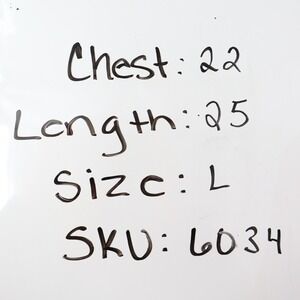 Chest: 22
Length: 25
Size: L
SKU: 6034